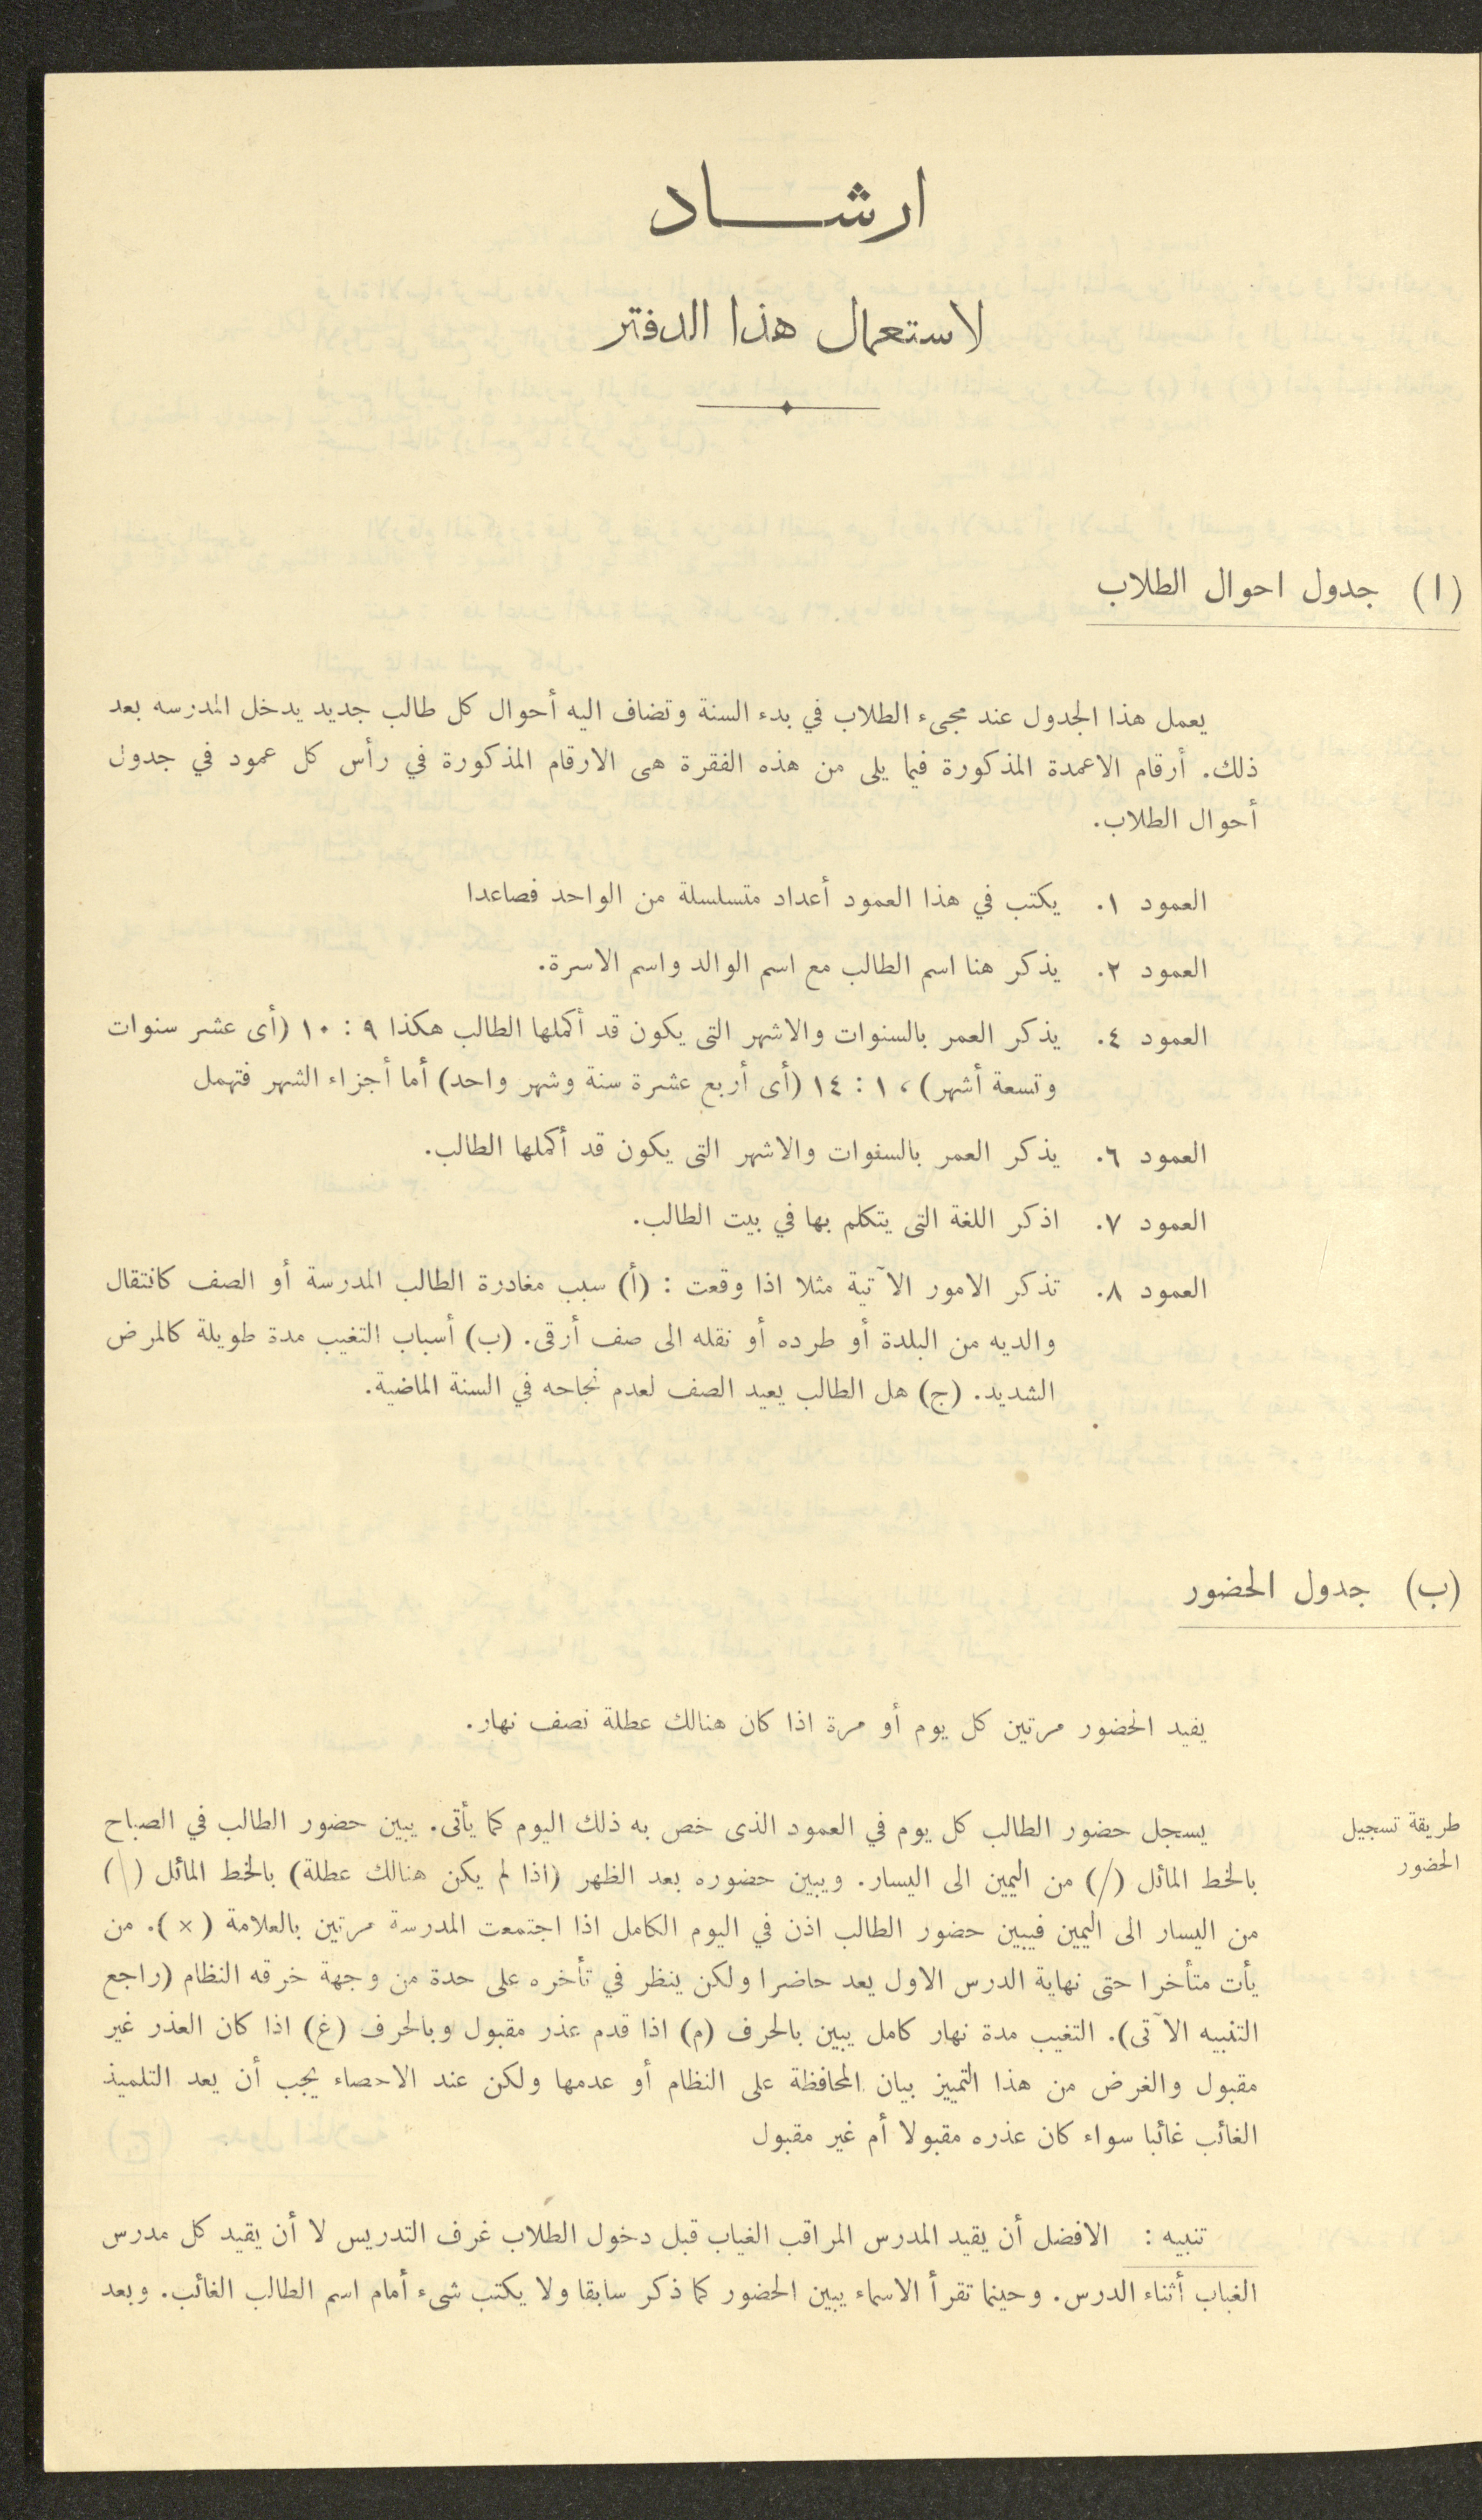 ارشاد
لاستعمال هذا الدفتر
(ا) جدول احوال الطلاب
يعمل هذا الجدول عند مجىء الطلاب في بدء السنة وتضاف اليه أحوال كل طالب جديد يدخل المدرسه بعد
ذلك. أرقام الاعمدة المذكورة فيما يلى من هذه الفقرة هى الارقام المذكورة في رأس كل عمود في جدول
أحوال الطلاب.
العمود ١. يكتب في هذا العمود أعداد متسلسلة من الواحد فصاعدا
العمود ٢. يذكر هنا اسم الطالب مع اسم الوالد واسم الاسرة.
العمود ٤. يذكر العمر بالسنوات والاشهر التى يكون قد أكملها الطالب هكذا ٩ : ١٠ (أى عشر سنوات
وتسعة أشهر) ، ١ : ١٤ (أى أربع عشرة سنة وشهر واحد) أما أجزاء الشهر فتهمل
العمود ٦. يذكر العمر بالسفوات والاشهر التى يكون قد أكملها الطالب.
العمود ٧. اذكر اللغة التى يتكلم بها في بيت الطالب.
العمود ٨. تذكر الامور الآتية مثلا اذا وقعت : (أ) سبب مغادرة الطالب المدرسة أو الصف كانتقال
والديه من البلدة أو طرده أو نقله الى صف أرقى. (ب) أسباب التغيب مدة طويلة كالمرض
الشديد. (ج) هل الطالب يعيد الصف لعدم نجاحه في السنة الماضية.
(ب) جدول الحضور
يفيد الحضور مرتين كل يوم أو مرة اذا كان هنالك عطلة نصف نهار.
طريقة تسجيل
الحضور
يسجل حضور الطالب كل يوم في العمود الذى خص به ذلك اليوم كما يأتى. يبين حضور الطالب في الصباح
بالخط المائل (/) من اليمين الى اليسار. ويبين حضوره بعد الظهر (اذا لم يكن هنالك عطلة) بالخط المائل (\)
من اليسار الى اليمين فيبين حضور الطالب اذن في اليوم الكامل اذا اجتمعت المدرسة مرتين بالعلامة (×). من
يأت متأخرا حتى نهاية الدرس الاول يعد حاضرا ولكن ينظر في تأخره على حدة من وجهة خرقه النظام (راجع
التنبيه الآتى). التغيب مدة نهار كامل يبين بالحرف (م) اذا قدم عذر مقبول وبالحرف (غ) اذا كان العذر غير
مقبول والغرض من هذا التمييز بيان المحافظة على النظام أو عدمها ولكن عند الاحصاء يجب أن يعد التلميذ
الغائب غائبا سواء كان عذره مقبولا أم غير مقبول
تنبيه : الافضل أن يقيد المدرس المراقب الغياب قبل دخول الطلاب غرف التدريس لا أن يقيد كل مدرس
الغياب أثناء الدرس. وحينما تقرأ الاسماء يبين الحضور كما ذكر سابقا ولا يكتب شىء أمام اسم الطالب الغائب. وبعد